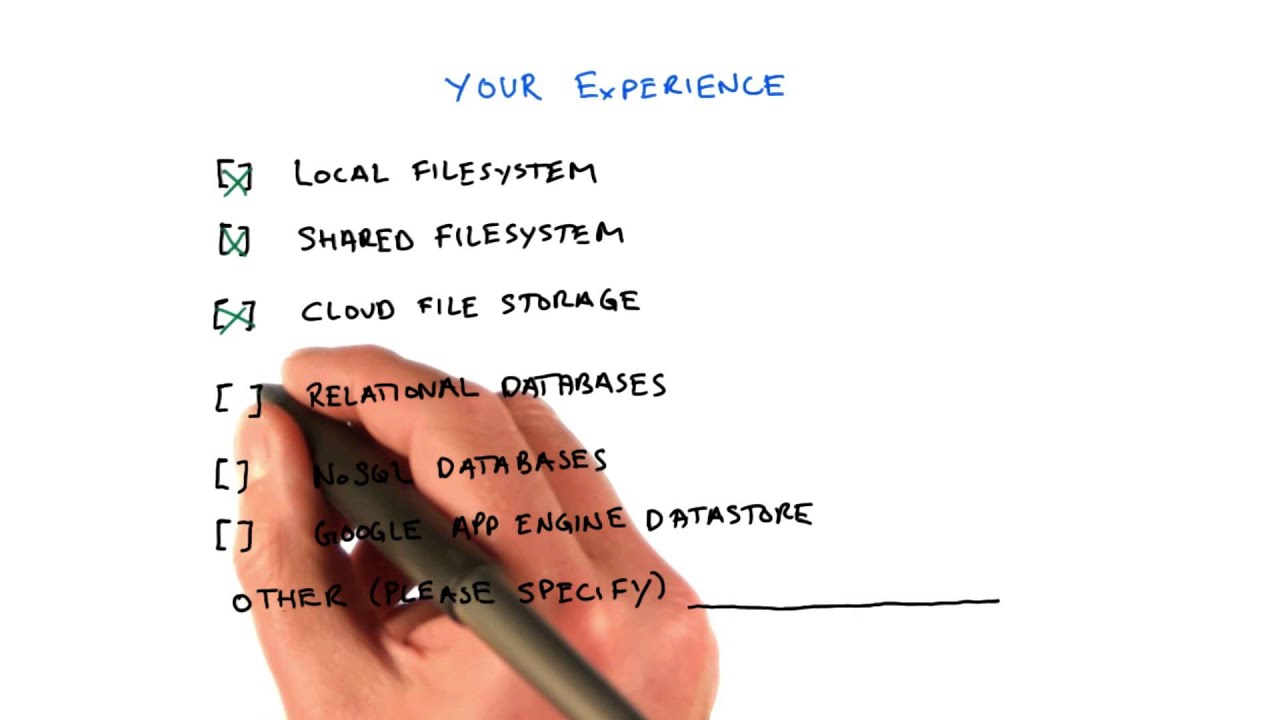 YOUR EXPERIENCE
[X] LOCAL FILESYSTEM
[X] SHARED FILESYSTEM
[X] CLOUD FILE STORAGE
[ ] RELATIONAL DATABASES
[ ] NOSQL DATABASES
[ ] GOOGLE APP ENGINE DATASTORE
OTHER (PLEASE SPECIFY) __________